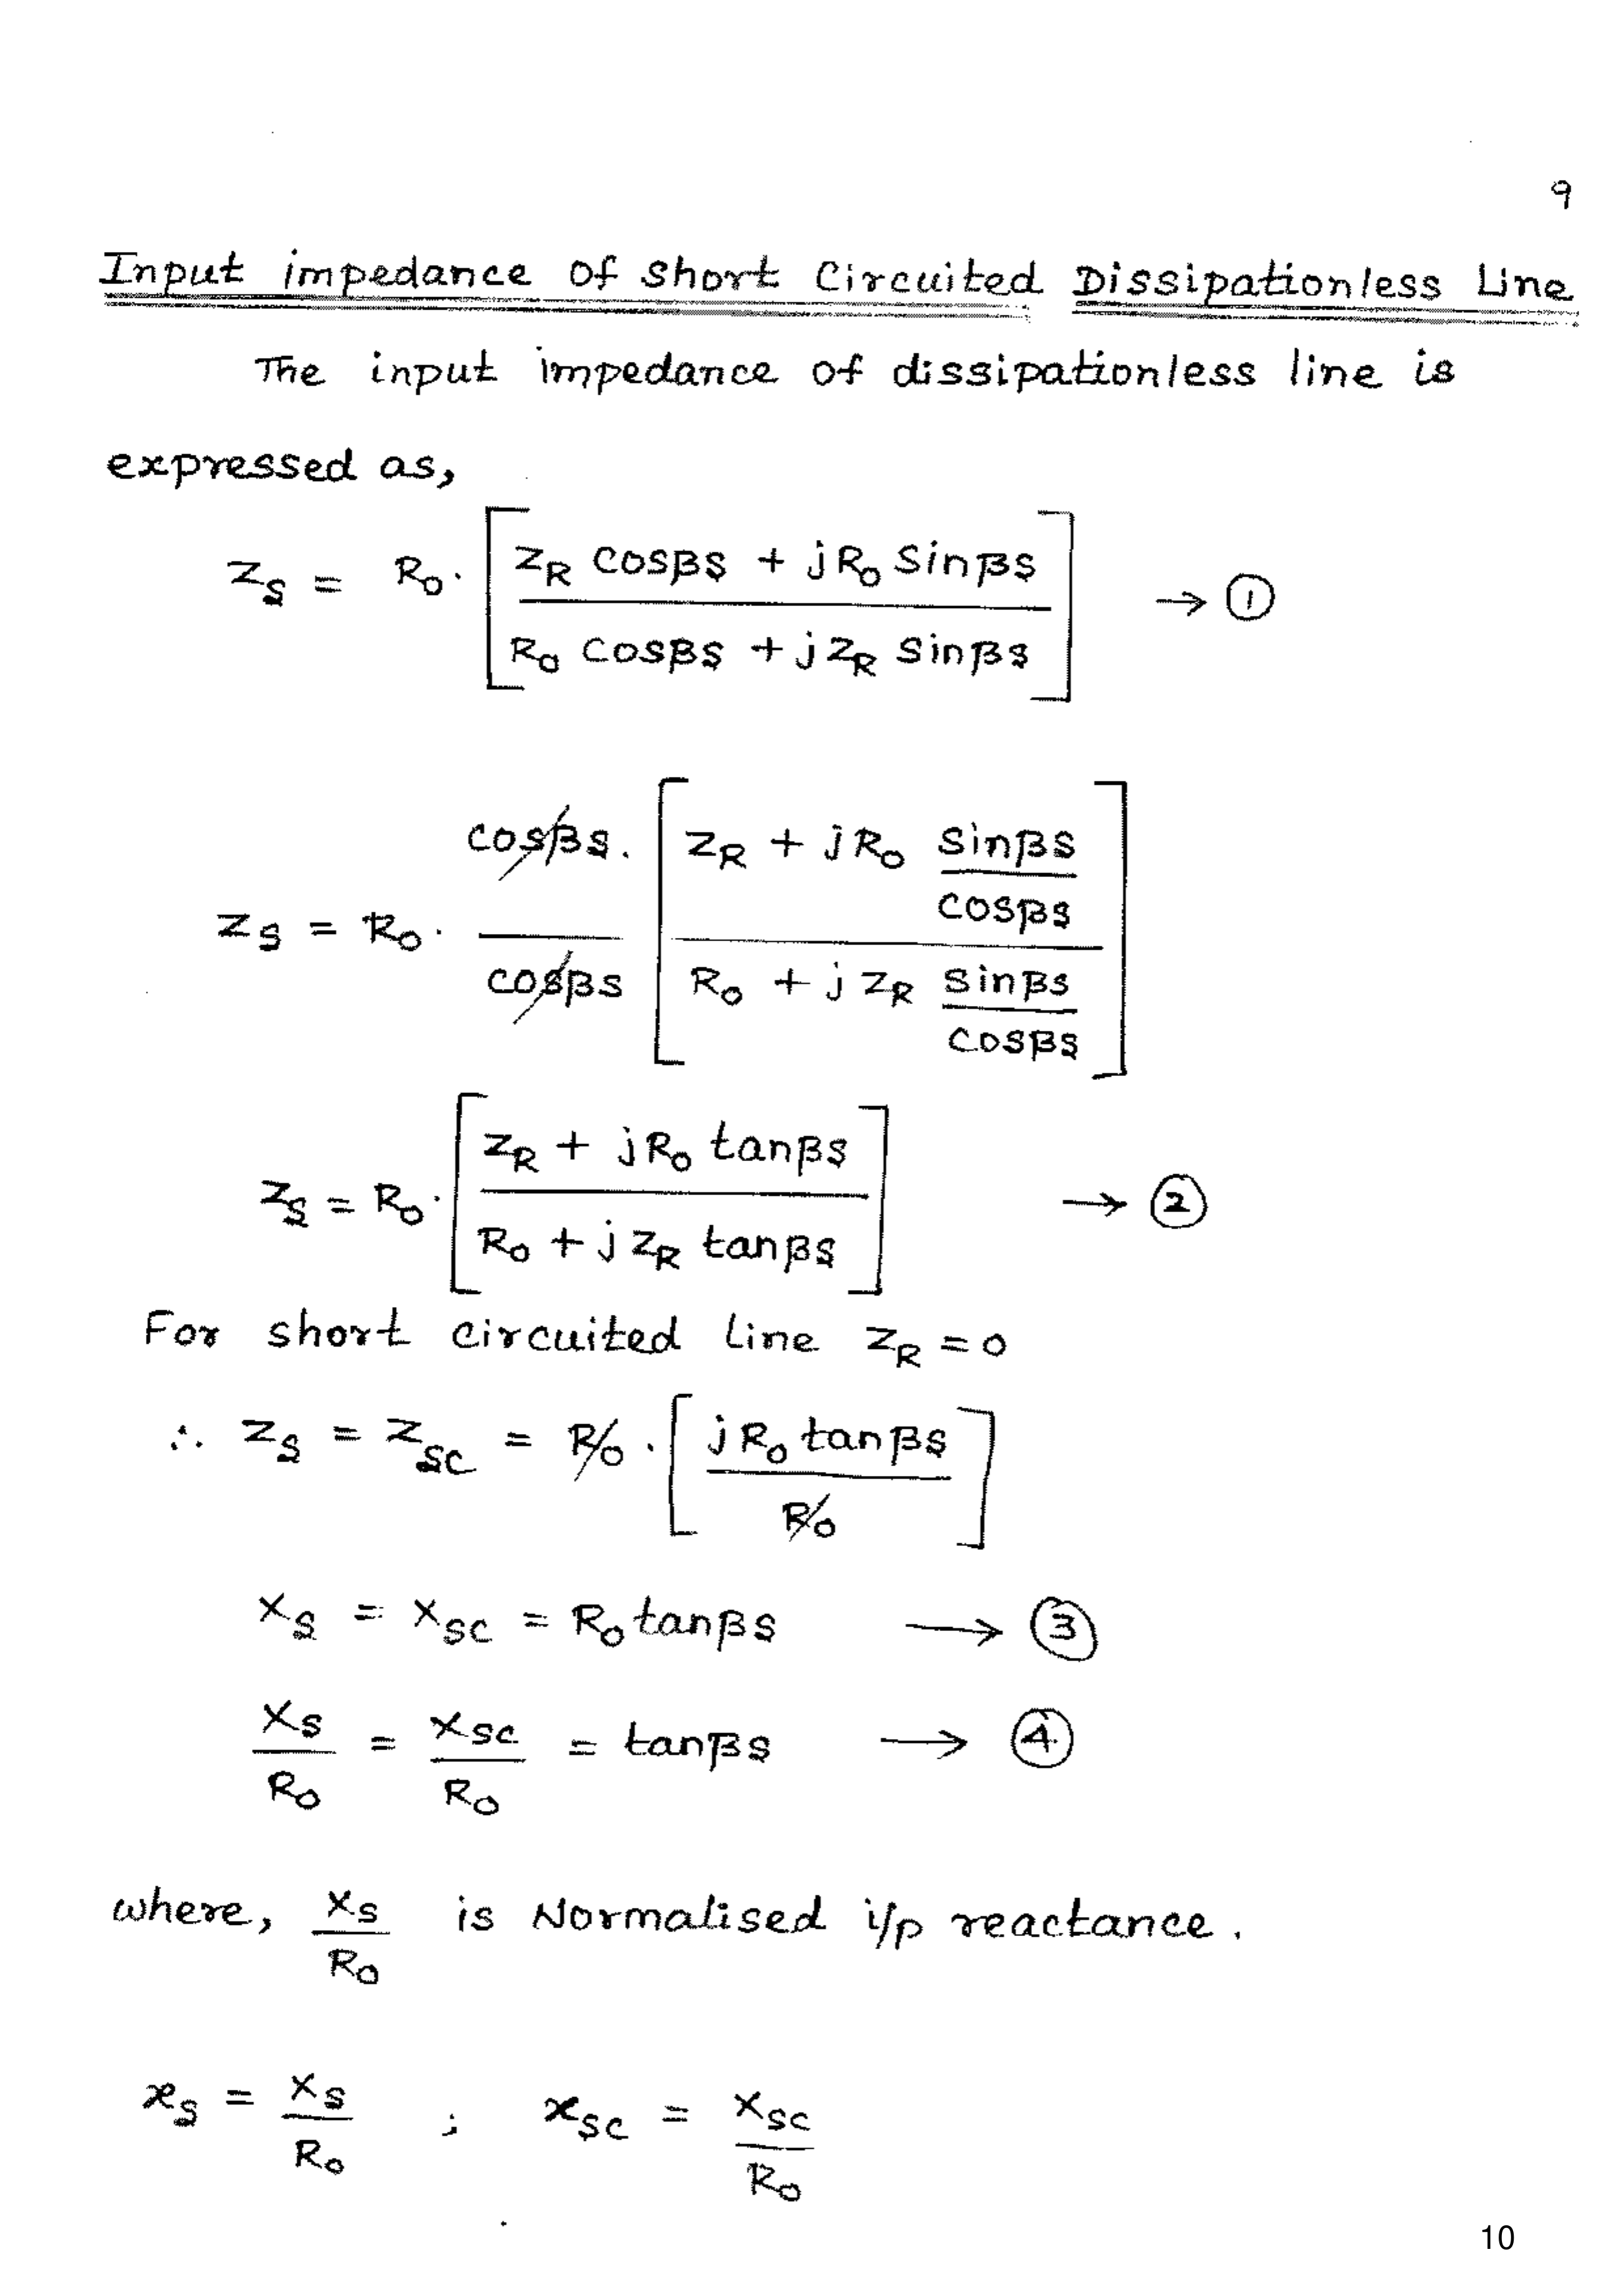 9
Input impedance of short Circuited Dissipationless Line
The input impedance of dissipationless line is
expressed as,
Z_S = R_0 . [ (Z_R cosβs + j R_0 sinβs) / (R_0 cosβs + j Z_R sinβs) ] → ①
Z_S = R_0 . (cosβs . / cosβs) [ (Z_R + j R_0 sinβs/cosβs) / (R_0 + j Z_R sinβs/cosβs) ]
Z_S = R_0 . [ (Z_R + j R_0 tanβs) / (R_0 + j Z_R tanβs) ] → ②
For short circuited line Z_R = 0
∴ Z_S = Z_SC = R_0 . [ j R_0 tanβs / R_0 ]
X_S = X_SC = R_0 tanβs → ③
X_S / R_0 = X_SC / R_0 = tanβs → ④
where, X_S / R_0 is Normalised i/p reactance.
x_S = X_S / R_0 ; x_SC = X_SC / R_0
10